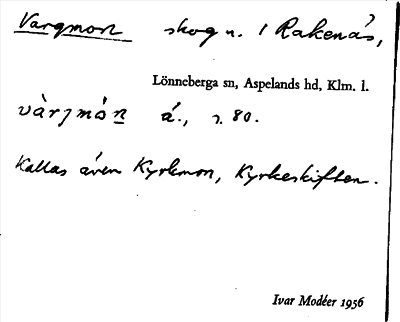 Vargmon skog n. i Rakenäs,
Lönneberga sn, Aspelands hd, Klm. l.
vàrjmón á., s. 80.
Kallas även Kyrkmon, Kyrkeskiften.
Ivar Modéer 1956